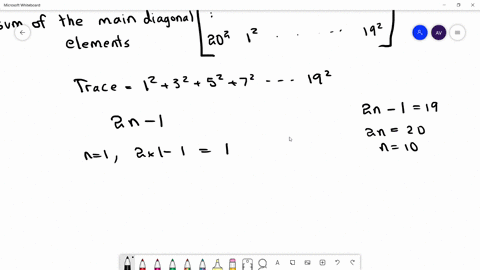 Microsoft Whiteboard
sum of the main diagonal
elements
:
20² 1² . . . . . . 19²
AV
Trace = 1² + 3² + 5² + 7² --- 19²
2n-1
n=1, 2×1-1 = 1
2n-1 = 19
2n = 20
n = 10